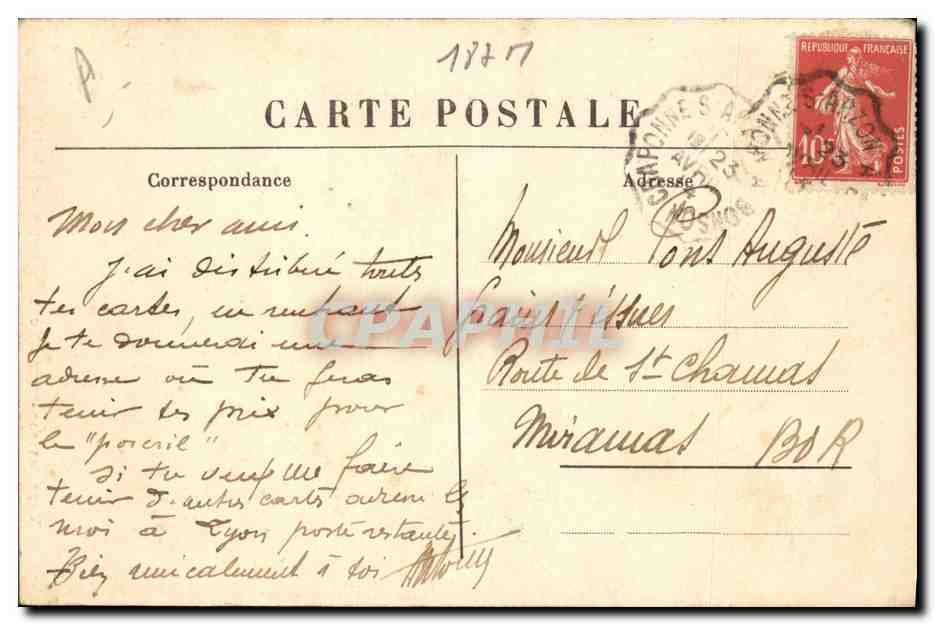 1877
CARTE POSTALE
REPUBLIQUE FRANÇAISE
10c
POSTES
CRAPONNE S ARZON
23
Correspondance
Adresse
Mon cher ami.
J'ai distribué toutes
tes cartes, en rentrant
Je te donnerai une
adresse où tu feras
tenir tes prix pour
le
Si tu veux me faire
tenir d'autres cartes adresse les
moi à Lyon poste restante.
Bien amicalement à toi Antoine
Monsieur Pons Auguste
Route de St Chamas
Miramas BDR
CPAPHIL